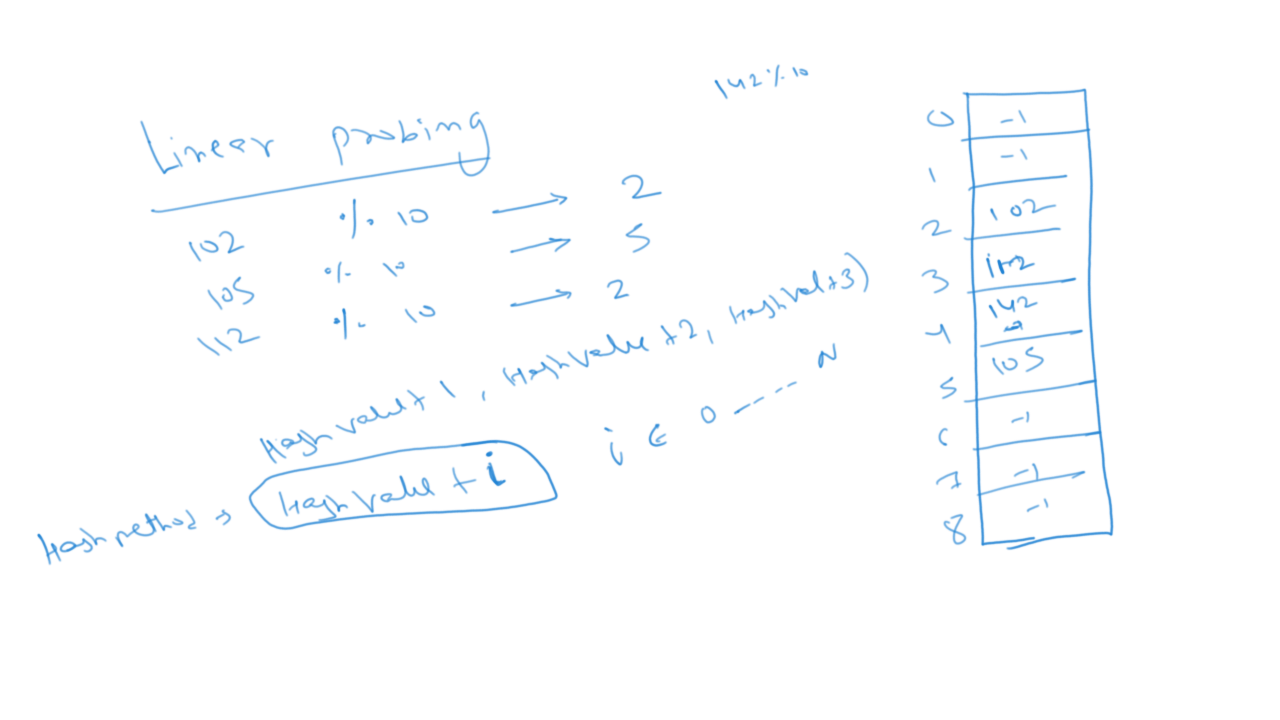 142 % 10
Linear probing
102 % 10 → 2
105 % 10 → 5
112 % 10 → 2
Hash value + 1, Hash value + 2, Hash val + 3)
i ∈ 0 ---- N
Hash method → Hash value + i
0 -1
1 -1
2 102
3 112
4 142
5 105
6 -1
7 -1
8 -1